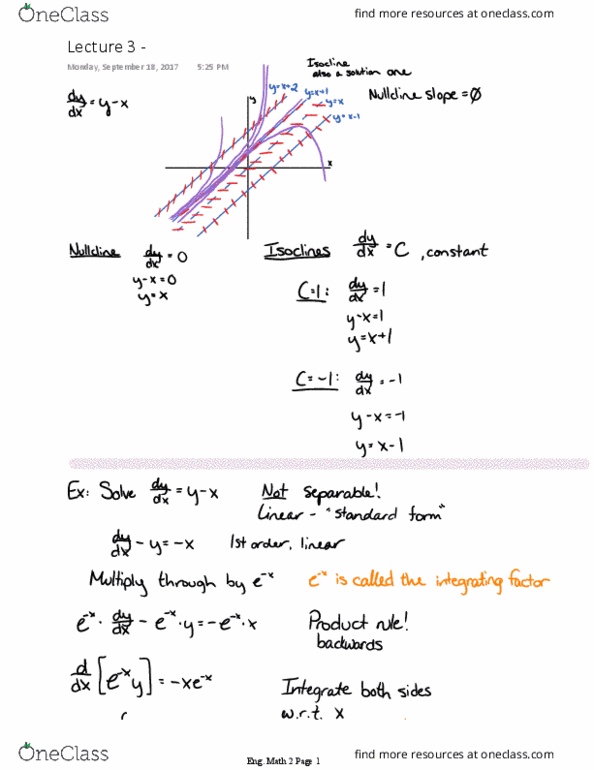 OneClass
find more resources at oneclass.com
Lecture 3 -
Monday, September 18, 2017 5:25 PM
dy/dx = y-x
Isocline
also a solution one
Nullcline slope = 0
y
y=x+2
y=x+1
y=x
y=x-1
x
Nullcline dy/dx = 0
y-x=0
y=x
Isoclines dy/dx = C, constant
C=1: dy/dx = 1
y-x=1
y=x+1
C=-1: dy/dx = -1
y-x=-1
y=x-1
Ex: Solve dy/dx = y-x Not separable!
Linear - "standard form"
dy/dx - y = -x 1st order, linear
Multiply through by e^-x e^-x is called the integrating factor
e^-x · dy/dx - e^-x · y = -e^-x · x Product rule!
backwards
d/dx [e^-x y] = -xe^-x Integrate both sides
w.r.t. x
OneClass
Eng. Math 2 Page 1
find more resources at oneclass.com